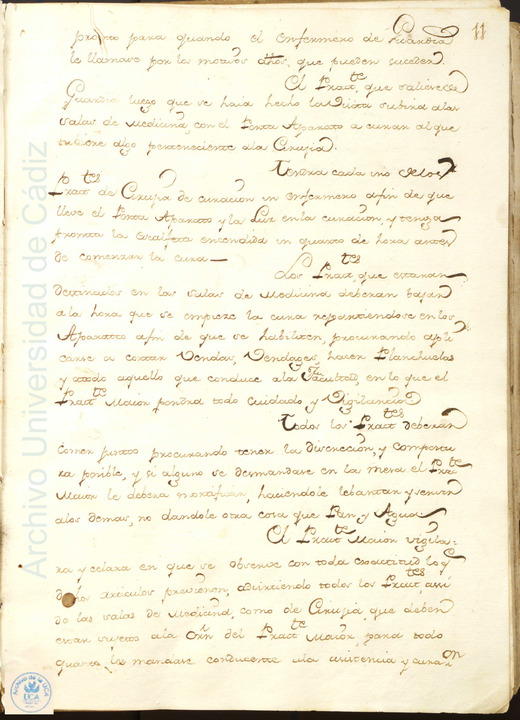 11
pronto para quando el enfermero de Guardia
le llamase por los motivos dhos, que pueden suceder.
El Practte que saliere de
Guardia luego que se haia hecho la Visita subira alas
salas de Medicina, con el Porta Aparato a curar al que
tubiere algo perteneciente ala Cirujia.
Tendra cada uno delos
Practtes de Cirujia de curacion un enfermero afin de que
lleve el Porta Aparato, y la Luz en la curacion, y tenga
pronta la Escalfeta encendida un quarto de hora antes
de comenzar la cura
Los Practtes que estaran
destinados en las salas de Medicina deberan bajar
ala hora que se empieze la cura repartiendose en los
Aparatos afin de que se habiliten, procurando apli
carse a cortar Vendas, Vendages, hacer Planchuelas
y atodo aquello que conduce ala Facultad, en lo que el
Practte Maior pondra todo cuidado, y Vigilancia
Todos los Practtes deberan
comer juntos procurando tener la discrecion, y compostu
ra posible, y si alguno se desmandase en la mesa el Practte
Maior le debera mortificar, haciendole lebantar, y servir
alos demas, no dandole otra cosa que Pan, y Agua
El Practte Maior vigila-
ra, y celara en que se observe con toda exactitud lo q
dichos articulos previenen, advirtiendo todos los Practtes assi
de las salas de Medicina, como de Cirujia, que deben
estar sujetos ala Orn del Practte Maior, para todo
quanto les mandase conducente ala asistencia, y curaon
Archivo Universidad de Cádiz
Archivo de la UCA
UCA